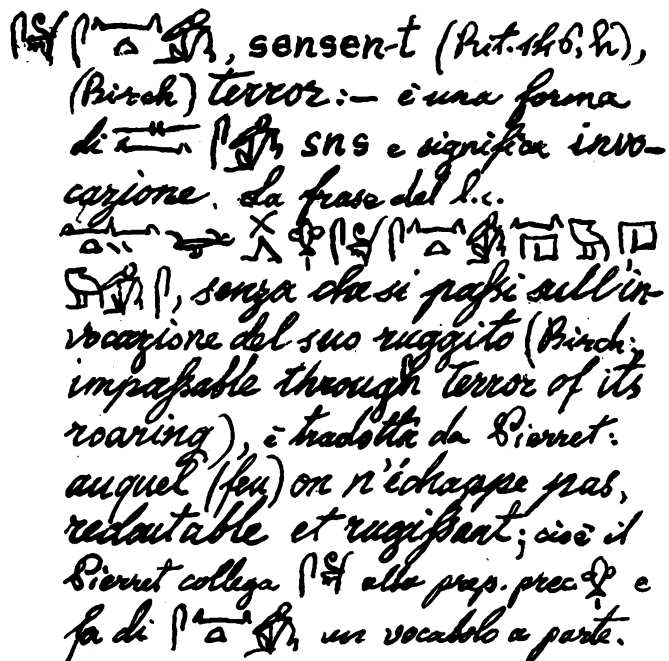 , sensen-t (Put. 146, h),
(Birch) terror: — è una forma
di sns e significa invo-
cazione. La frase del l.c.
, senza che si passi sull'in-
vocazione del suo ruggito (Birch:
impassable through terror of its
roaring), è tradotta da Pierret:
auquel (feu) on n'échappe pas,
redoutable et rugissant; cioè il
Pierret collega alla prep. prec. e
fa di un vocabolo a parte.